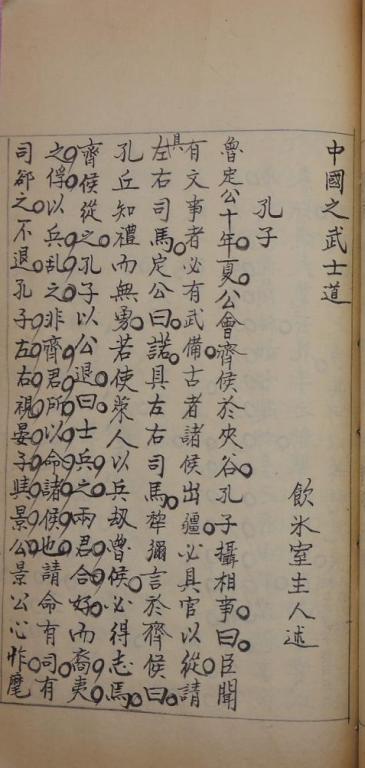 中國之武士道
飲氷室主人述
孔子
魯定公十年夏。公會齊侯於夾谷。孔子攝相事。曰。臣聞
有文事者必有武備。古者諸侯出疆。必具官以從。請
具左右司馬。定公曰。諾。具左右司馬。犂彌言於齊侯曰。
孔丘知禮而無勇。若使萊人以兵劫魯侯。必得志焉。
齊侯從之。孔子以公退曰。士兵之。兩君合好。而裔夷
之俘以兵乱之。非齊君所以命諸侯也。請命有司。有
司卻之。不退。孔子左右視晏子與景公。景公心怍。麾